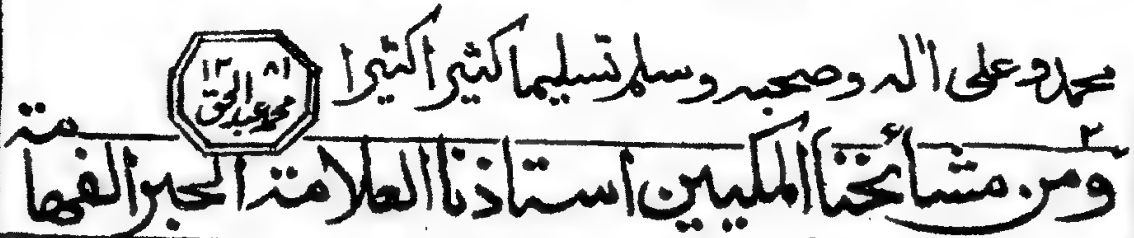 محمد وعلى اله وصحبه وسلم تسليما كثيرا كثيرا
١٣٨١
محمد عبد الحق
٢
ومن مشائخنا المكيين استاذنا العلامة الحبر الفهامة